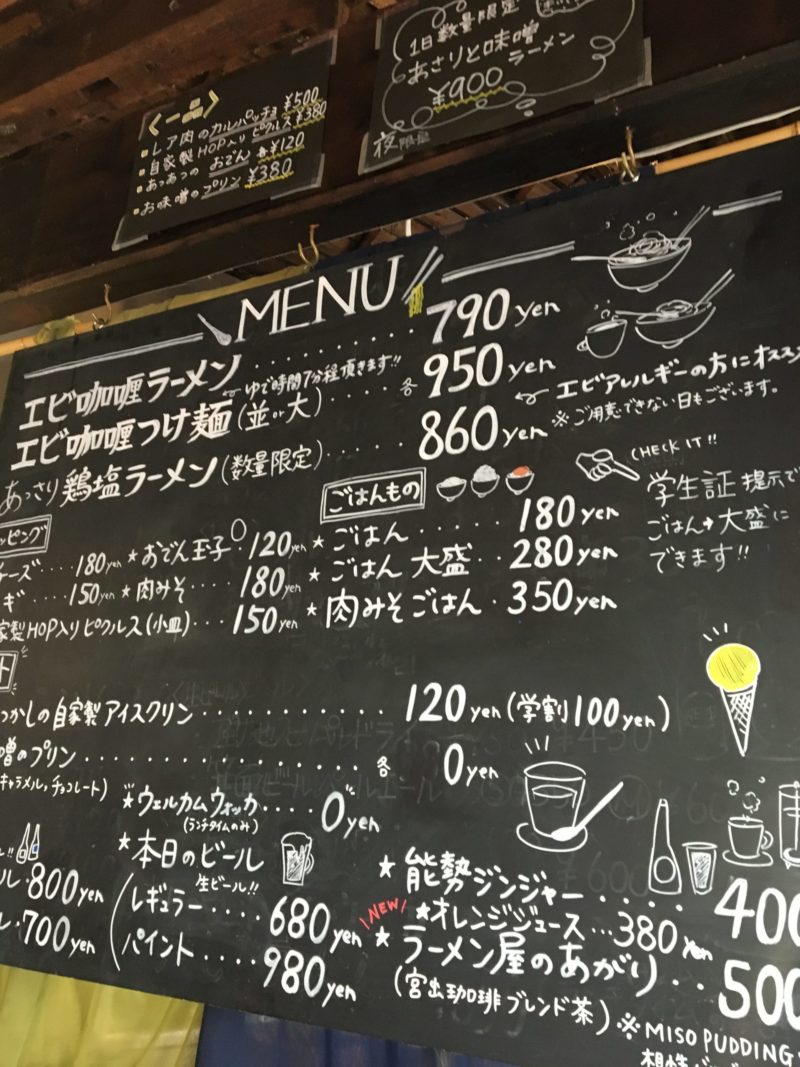 1日数量限定
あさりと味噌
ラーメン
¥900
夜限定
<一品>
レア肉のカルパッチョ ¥500
自家製HOP入りピクルス ¥380
あつあつの おでん 各¥120
お味噌のプリン ¥380
MENU
エビ咖喱ラーメン ・・・・・・・ 790 yen
ゆで時間7分程頂きます!!
エビ咖喱つけ麺(並or大) ・・・・ 各 950 yen
エビアレルギーの方にオススメ
※ご用意できない日もございます。
あっさり鶏塩ラーメン(数量限定) ・・・・・ 860 yen
CHECK IT!!
学生証提示で
ごはん→大盛に
できます!!
ッピング
チーズ ・・・・ 180yen
ギ ・・・・ 150yen
家製HOP入りピクルス(小皿)・・・ 150yen
★おでん玉子 120yen
★肉みそ ・・・ 180yen
ごはんもの
★ごはん ・・・・・ 180yen
★ごはん 大盛 ・・ 280yen
★肉みそごはん・350yen
ト
つかしの自家製アイスクリン ・・・・・・・・・・ 120yen (学割100yen)
噌のプリン ・・・・・・・・・・・・ 各 0yen
キャラメル,チョコレート)
★ウェルカムウォッカ ・・・・ 0yen
(ランチタイムのみ)
★本日のビール
生ビール!!
レギュラー ・・・・ 680yen
パイント ・・・・ 980yen
!!
ル・800yen
・700yen
★能勢ジンジャー ・・・・・ 400
NEW
★オレンジジュース・・・380yen
★ラーメン屋のあがり ・・ 500
(宮出珈琲ブレンド茶)
※MISO PUDDING
相性